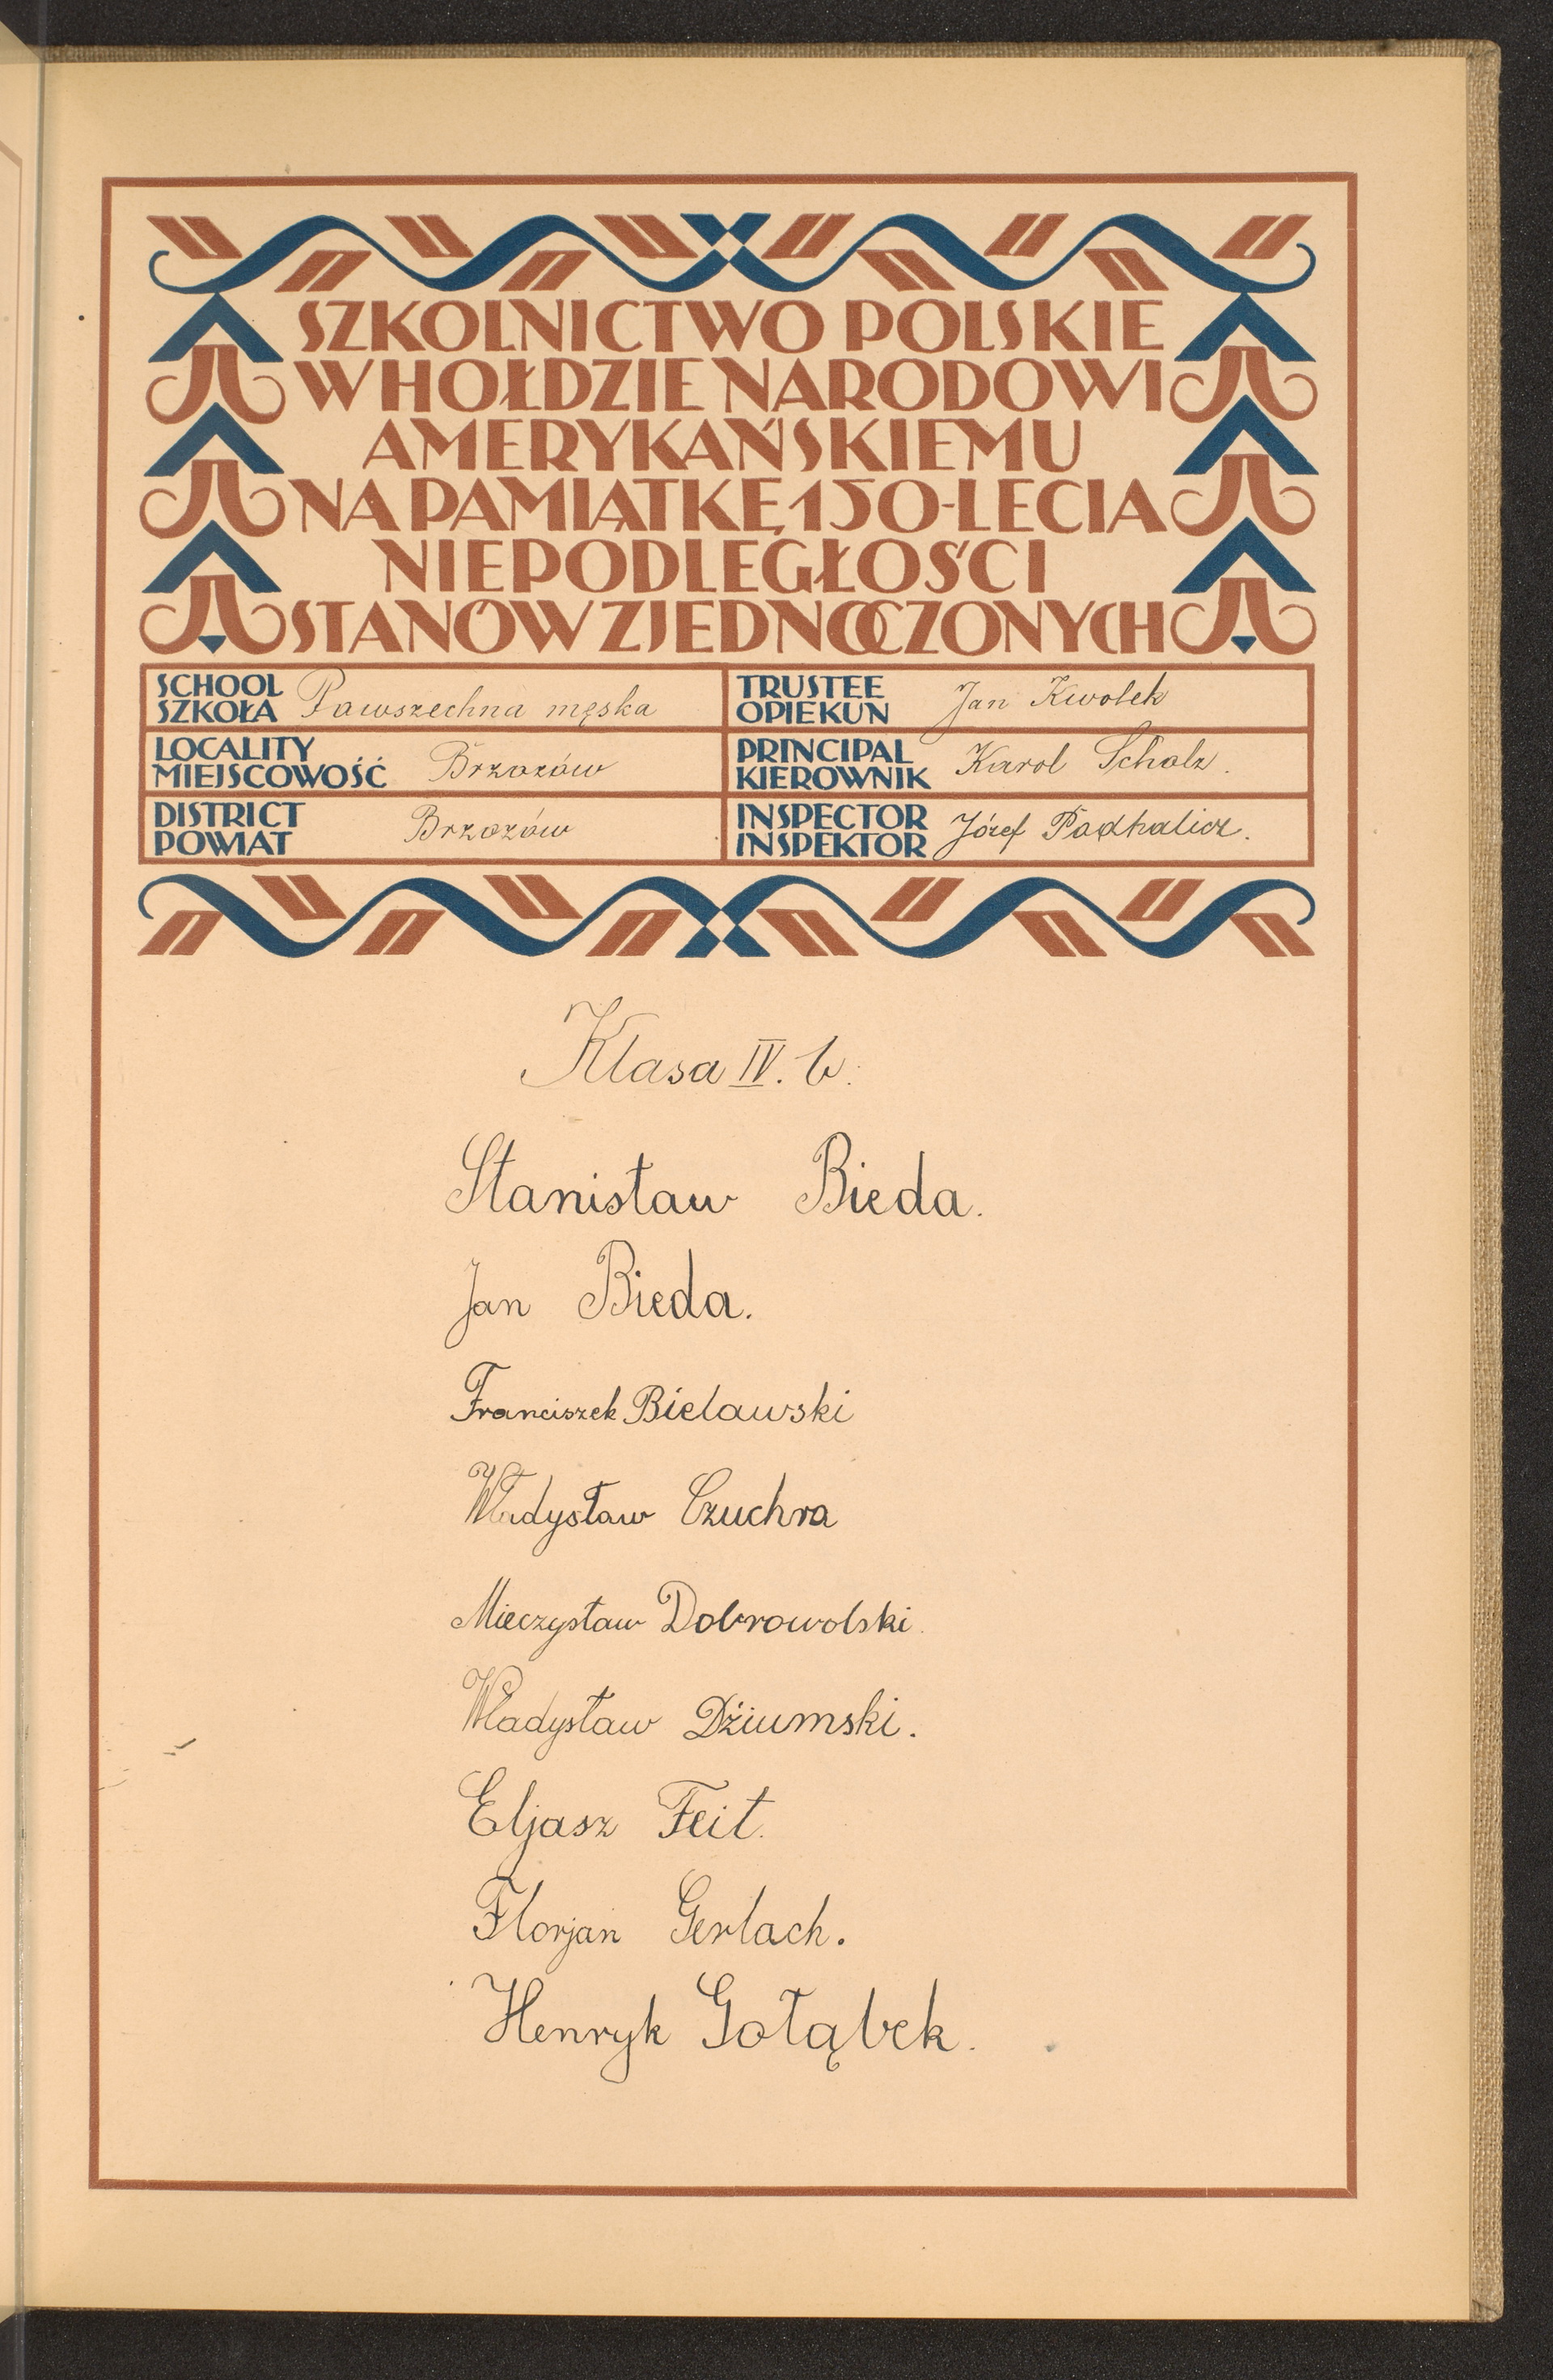 SZKOLNICTWO POLSKIE
W HOŁDZIE NARODOWI
AMERYKAŃSKIEMU
NA PAMIĄTKĘ 150-LECIA
NIEPODLEGŁOŚCI
STANÓW ZJEDNOCZONYCH
SCHOOL
SZKOŁA Powszechna męska
TRUSTEE
OPIEKUN Jan Kwolek
LOCALITY
MIEJSCOWOŚĆ Brzozów
PRINCIPAL
KIEROWNIK Karol Scholz.
DISTRICT
POWIAT Brzozów
INSPECTOR
INSPEKTOR Józef Podhalicz.
Klasa IV. b.
Stanisław Bieda.
Jan Bieda.
Franciszek Bielawski
Władysław Czuchra
Mieczysław Dobrowolski.
Władysław Dżiumski.
Eljasz Feit.
Florjan Gerlach.
Henryk Gołąbek.